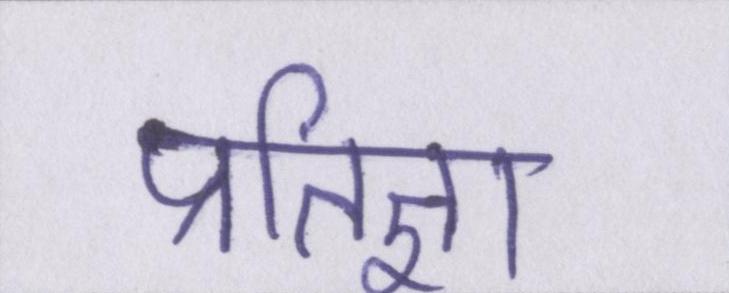 प्रतिज्ञा